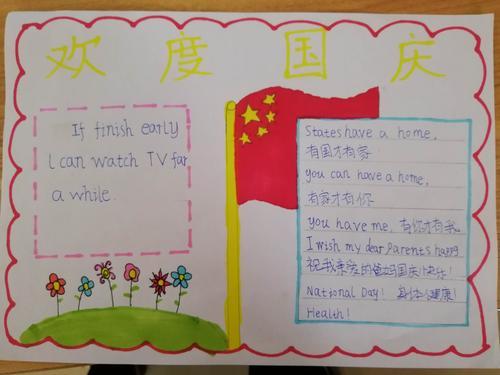 欢度国庆
If finish early
I can watch TV for
a while.
States have a home,
有国才有家
you can have a home,
有家才有你
you have me. 有你才有我
I wish my dear parents happy
祝我亲爱的爸妈国庆快乐!
National Day! 身体健康!
Health!